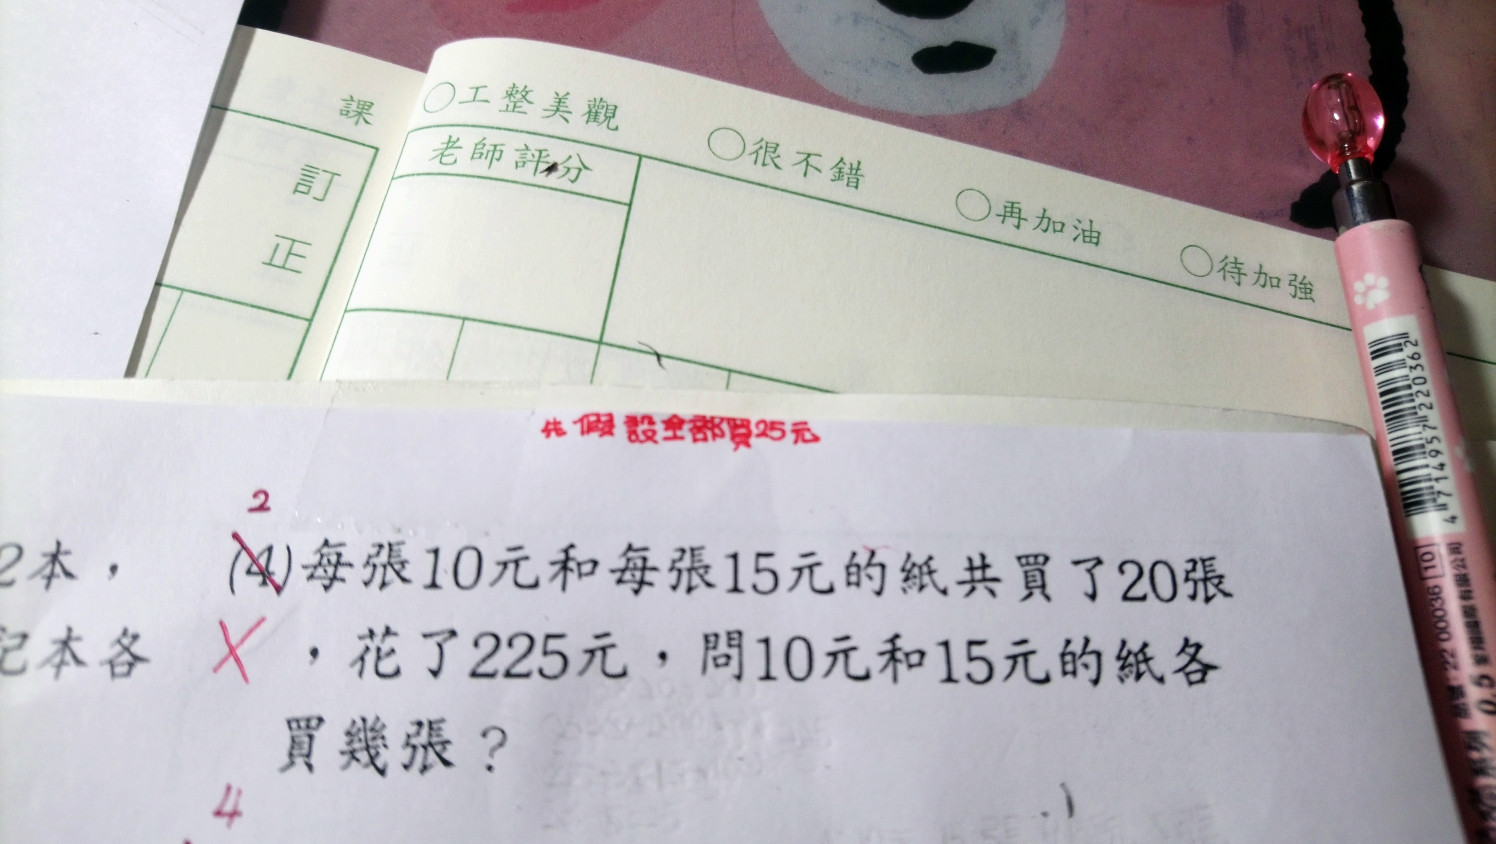 課
訂
正
○工整美觀
○很不錯
○再加油
○待加強
老師評分
假設全部買25元
2
2本，
(4)每張10元和每張15元的紙共買了20張
記本各
，花了225元，問10元和15元的紙各
買幾張？
4
4714957220362
22 00036
10
0.5